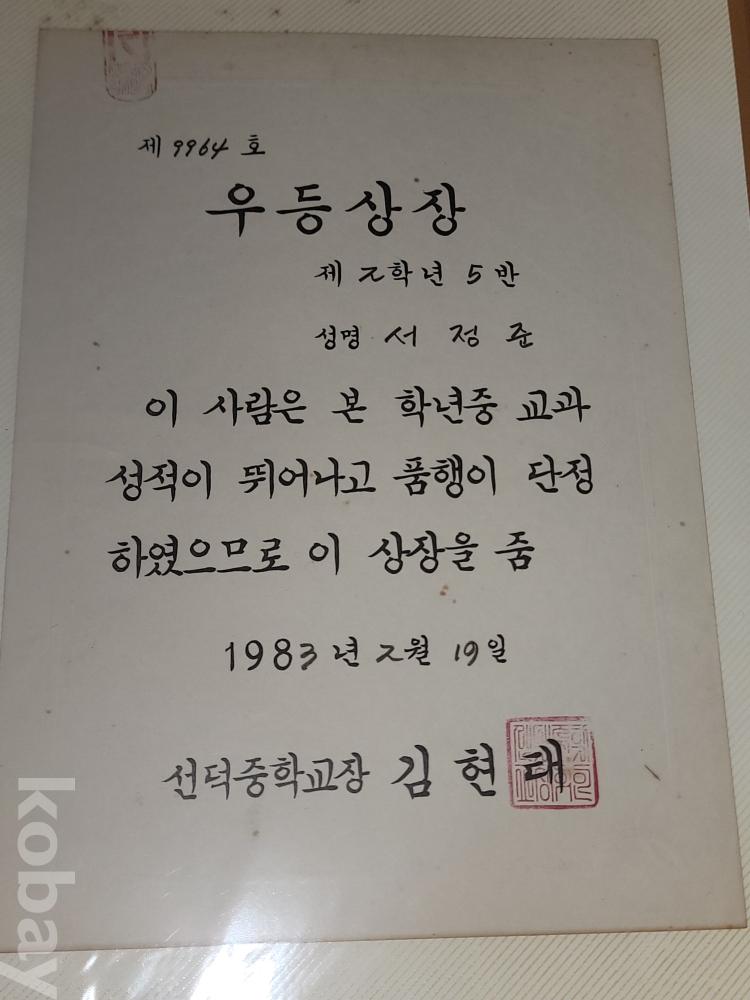 제 9964 호
우등상장
제 2학년 5반
성명 서 정 준
이 사람은 본 학년중 교과
성적이 뛰어나고 품행이 단정
하였으므로 이 상장을 줌
1983년 2월 19일
선덕중학교장 김현태
kobay